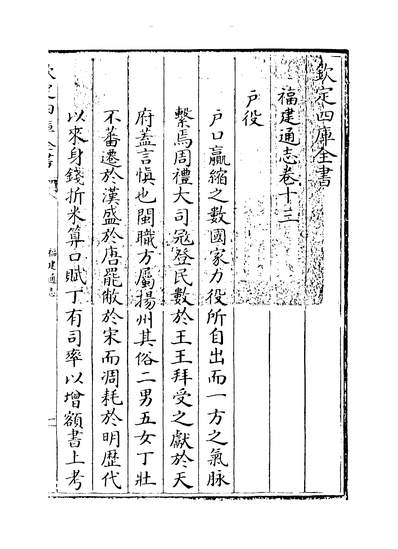 欽定四庫全書
福建通志卷十三
戶役
戶口贏縮之數國家力役所自出而一方之氣脉
繫焉周禮大司冦登民數於王王拜受之獻於天
府蓋言慎也閩職方屬揚州其俗二男五女丁壯
不蕃遷於漢盛於唐罷敝於宋而凋耗於明歴代
以來身錢折米算口賦丁有司率以增額書上考
欽定四庫全書
福建通志
一